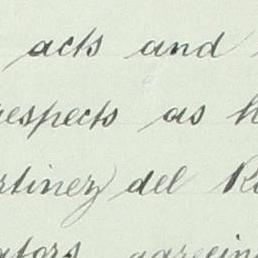 acts and
respects as h
rtinez del R
ators agreein